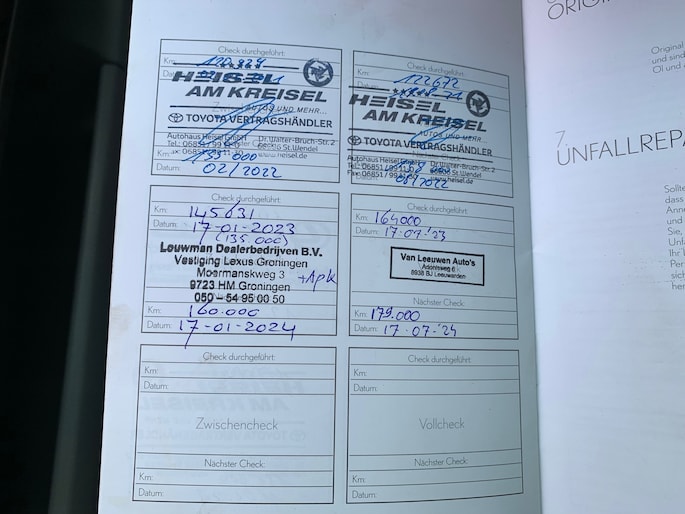 Check durchgeführt:
Km: 120.828
Datum:
HEISEL
AM KREISEL
AUTOS UND MEHR...
TOYOTA VERTRAGSHÄNDLER
Autohaus Heisel GmbH Dr.Walter-Bruch-Str.2
Tel.: 06851 / St.Wendel
Km: 135.000 www.heisel.de
02/2022
Check durchgeführt:
Km: 122672
Datum:
HEISEL
AM KREISEL
AUTOS UND MEHR...
TOYOTA VERTRAGSHÄNDLER
Autohaus Heisel GmbH Dr.Walter-Bruch-Str.2
Tel.: 06851 / St.Wendel
Fax: 06851 / www.heisel.de
Datum: 08/2022
Check durchgeführt:
Km: 145631
Datum: 17-01-2023
(135 000)
Louwman Dealerbedrijven B.V.
Vestiging Lexus Groningen
Moermanskweg 3
+Apk
9723 HM Groningen
050 - 54 95 00 50
Km: 160.000
Datum: 17-01-2024
Check durchgeführt:
Km: 164000
Datum: 17-07-'23
Van Leeuwen Auto's
8938 BJ Leeuwarden
Nächster Check:
Km: 179.000
Datum: 17-07-'24
Check durchgeführt:
Km:
Datum:
Zwischencheck
Nächster Check:
Km:
Datum:
Check durchgeführt:
Km:
Datum:
Vollcheck
Nächster Check:
Km:
Datum:
Original
und sind
Öl und
7
UNFALLREPA
Sollte
dass
Sie,
Unfa
Ihr